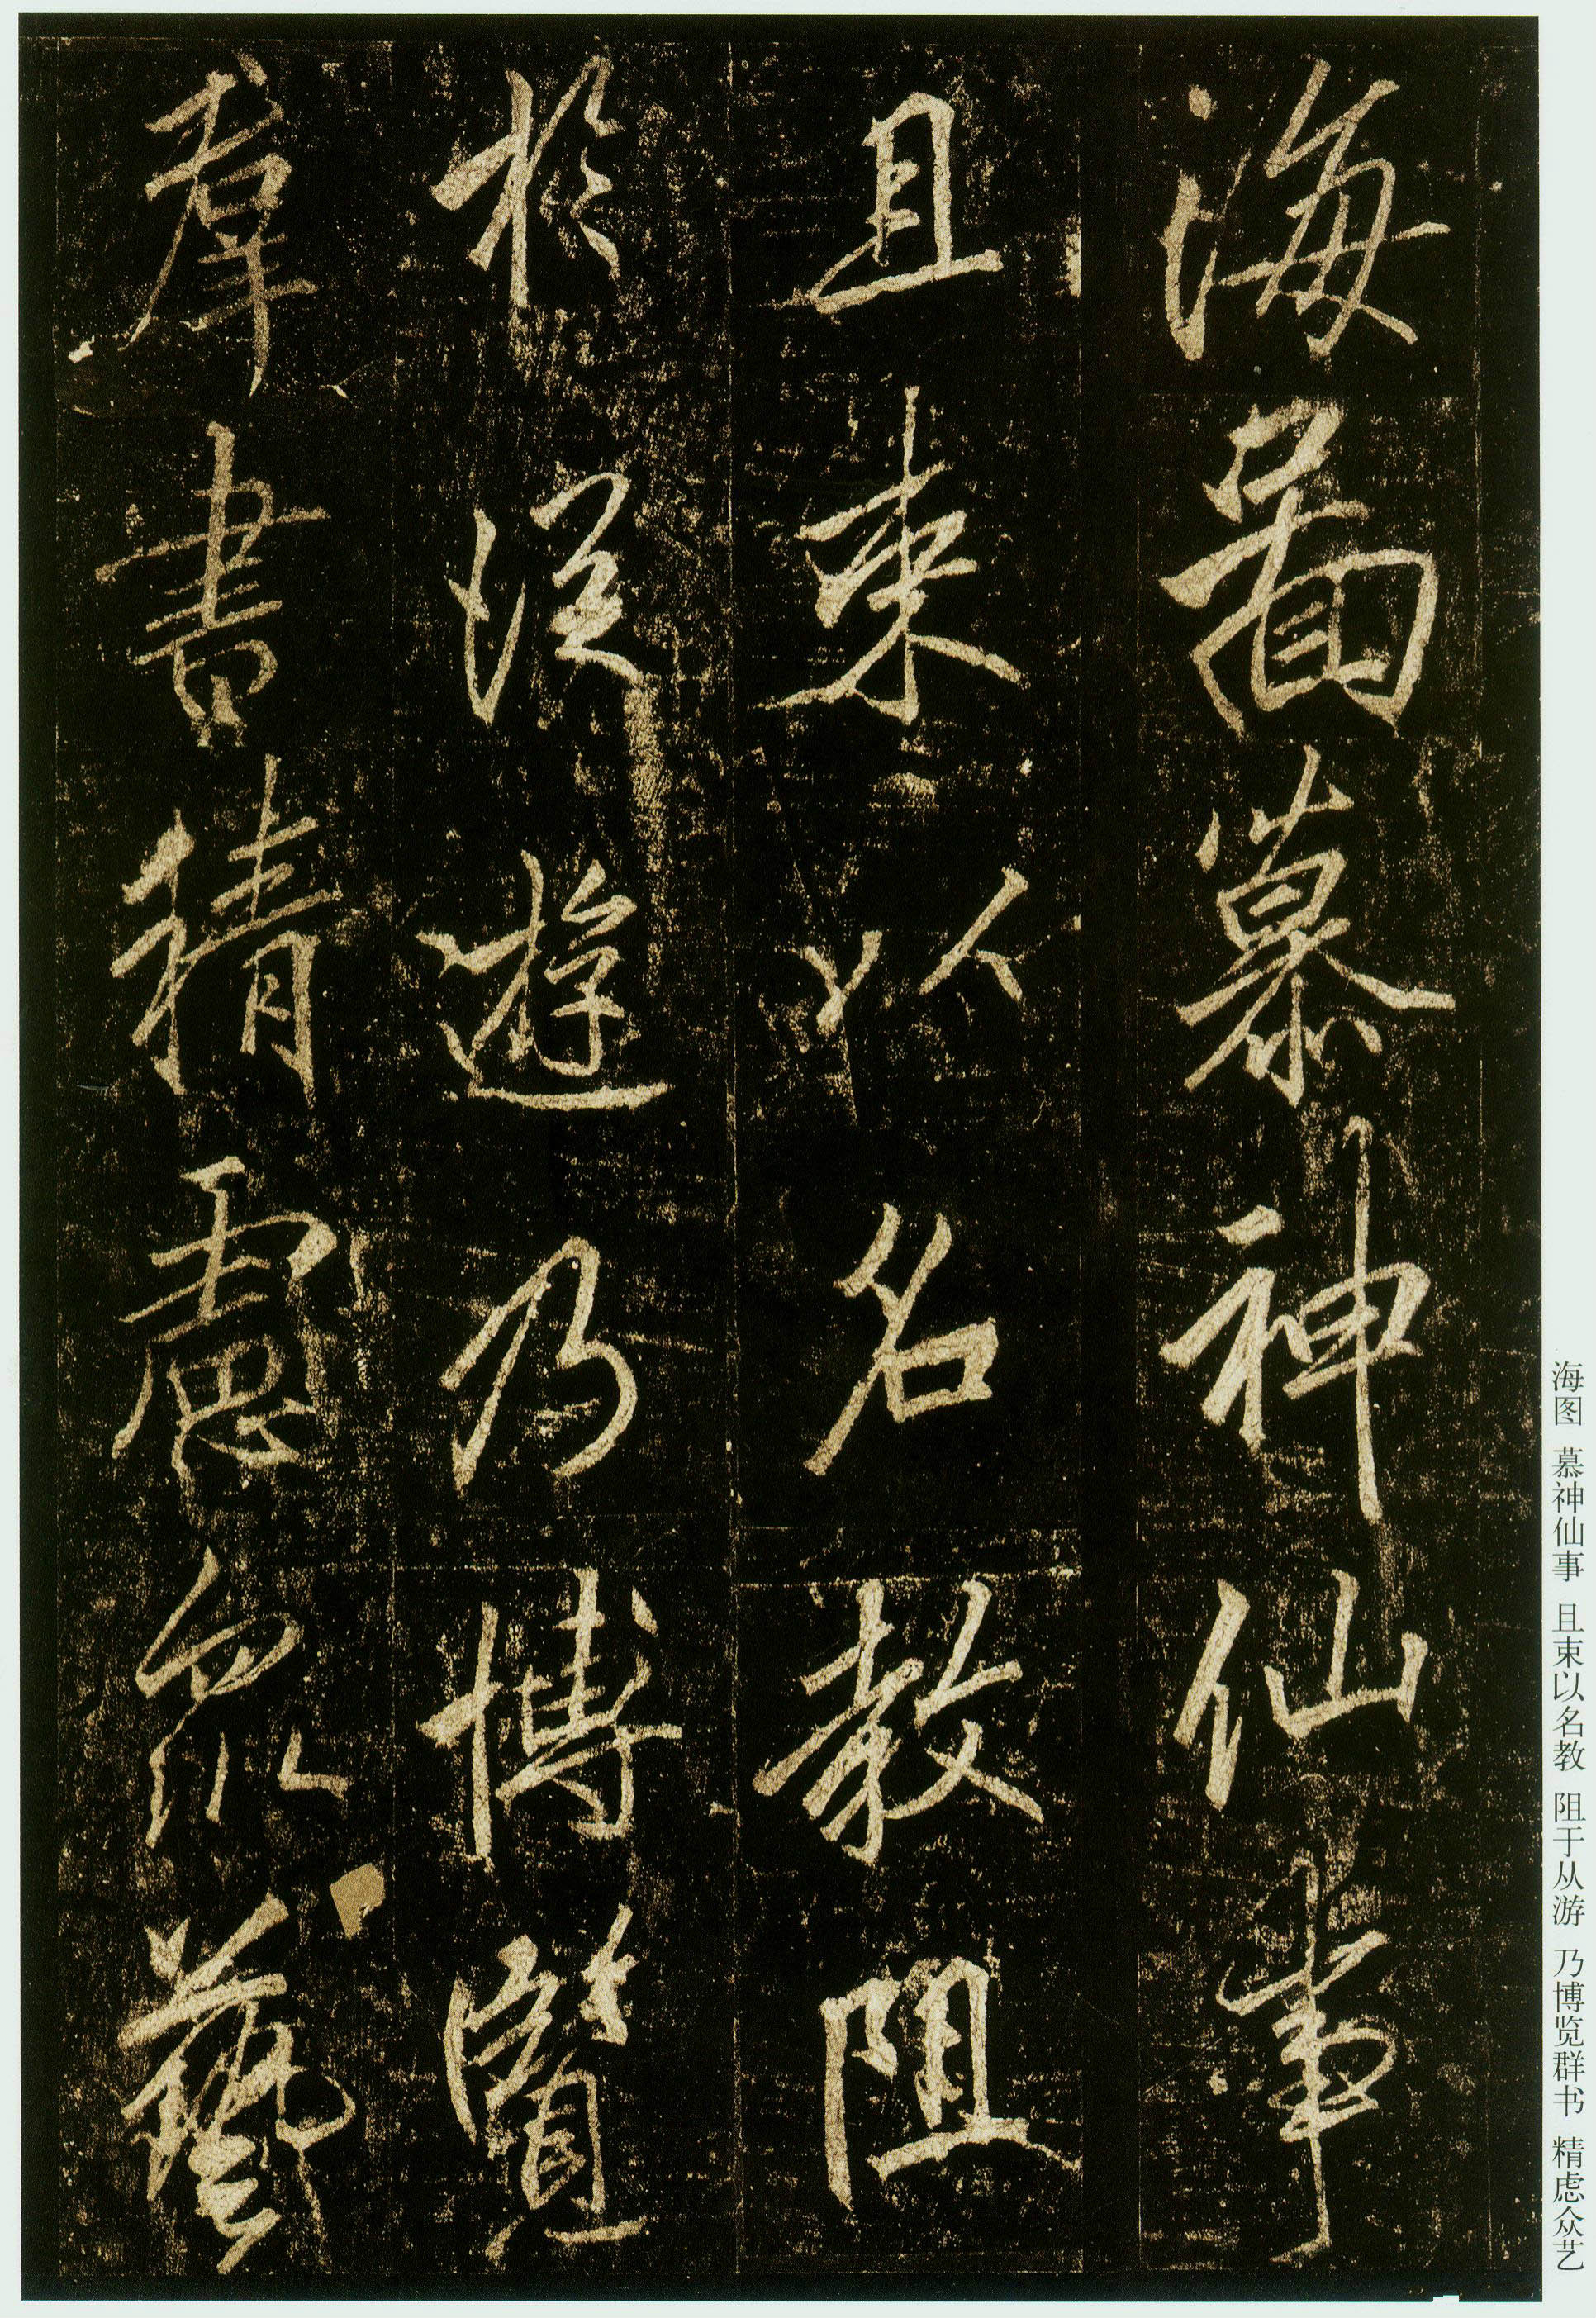 海啚慕神仙事
且束以名教阻
於從遊乃博覽
羣書精慮眾藝
海图 慕神仙事 且束以名教 阻于从游 乃博览群书 精虑众艺